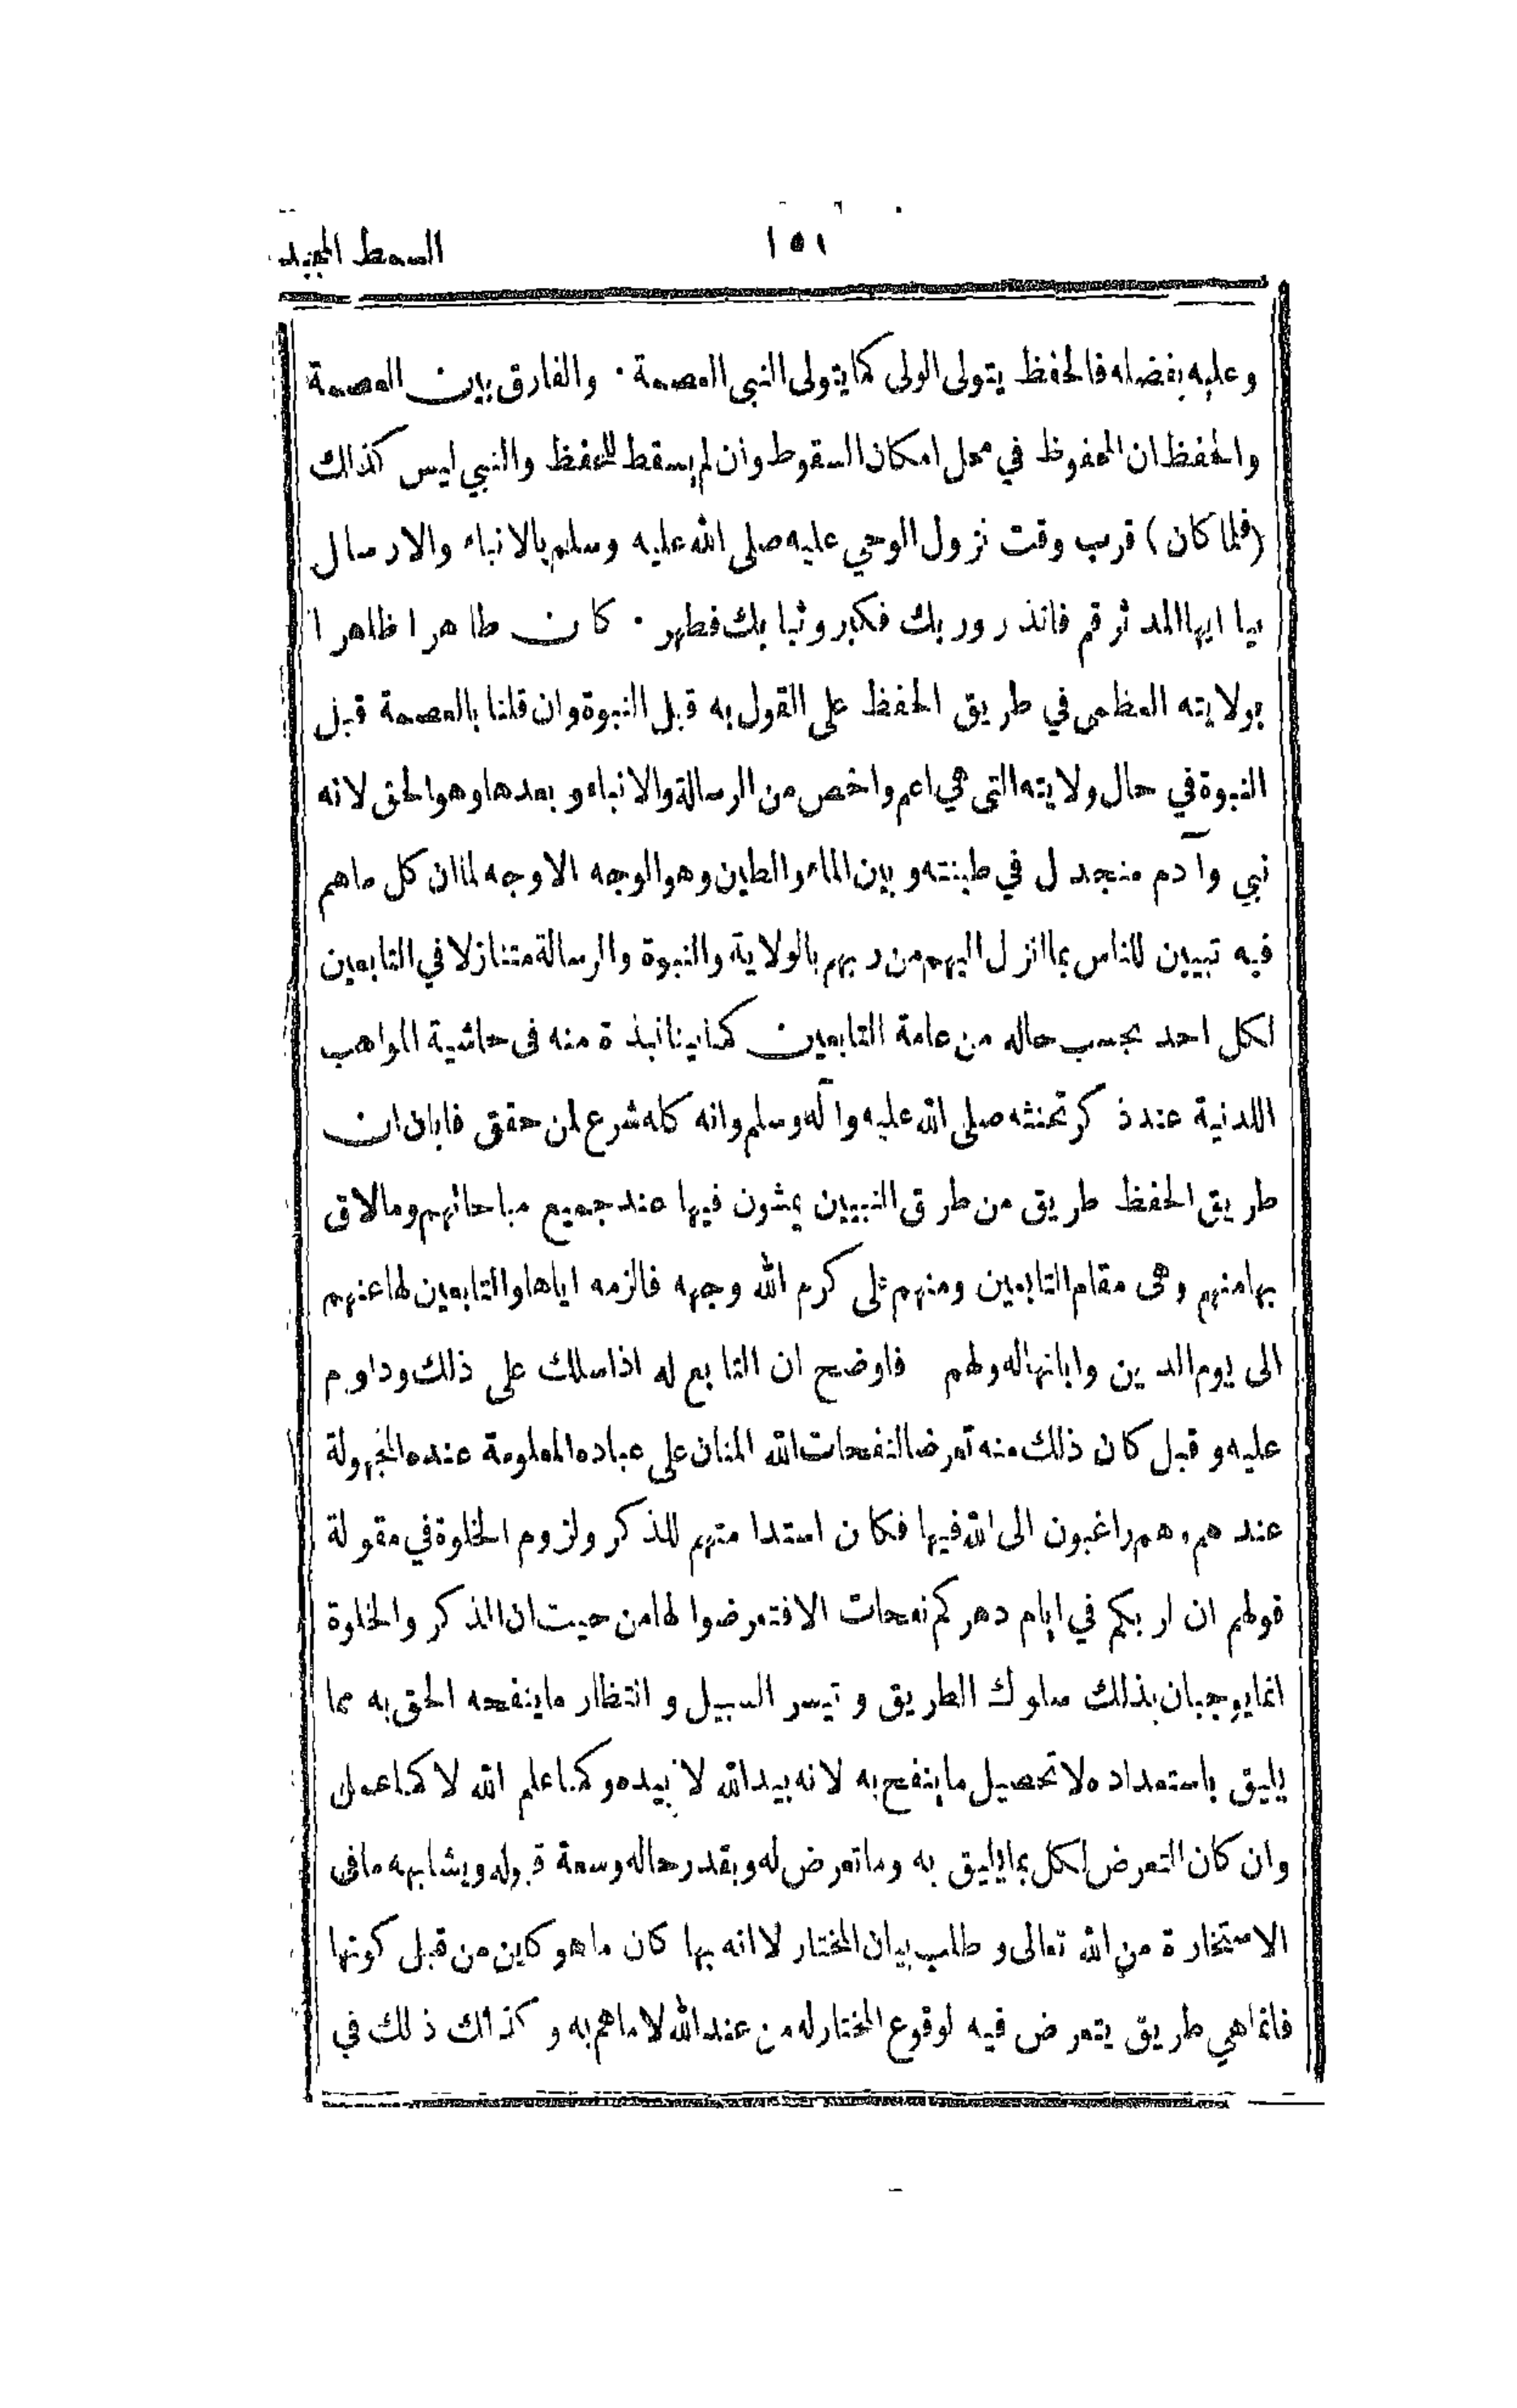 ١٥١ السمط المجيد
وعليه بفضله فالحفظ يتولى الولى كما يتولى النبى العصمة · والفارق بين العصمة
والحفظ ان المحفوظ في محل امكان السقوط وان لم يسقط للحفظ والنبي ليس كذالك
(فلما كان) قرب وقت نزول الوحي عليه صلى الله عليه وسلم بالانباء والارسال
بيا ايها المدثر قم فانذر وربك فكبر وثيابك فطهر · كان طاهرا ظاهرا
بولايته العظمى في طريق الحفظ على القول به قبل النبوة وان قلنا بالعصمة قبل
النبوة في حال ولايته التى هي اعم واخص من الرسالة والانباء وبعدها وهو الحق لانه
نبي وآدم منجدل في طينته وبين الماء والطين وهو الوجه الاوجه لما ان كل ما هم
فيه تبيين للناس بما انزل اليهم من ربهم بالولاية والنبوة والرسالة متنازلا في التابعين
لكل احد بحسب حاله من عامة التابعين كما بينا نبذة منه فى حاشية المواهب
اللدنية عند ذكر تحنثه صلى الله عليه وآله وسلم وانه كله شرع لمن حقق فابان ان
طريق الحفظ طريق من طرق النبيين يمشون فيها عند جميع مباحاتهم وما لاق
بها منهم وهى مقام التابعين ومنهم على كرم الله وجهه فالزمه اياها والتابعين لها عنهم
الى يوم الدين وابانها له ولهم فاوضح ان التابع له اذا سلك على ذلك وداوم
عليه وقبل كان ذلك منه تعرضا لنفحات الله المنان على عباده المعلومة عنده المجهولة
عند هم وهم راغبون الى الله فيها فكان استدامتهم للذكر ولزوم الخلوة في مقولة
قولهم ان لربكم في ايام دهركم نفحات الا فتعرضوا لها من حيث ان الذكر والخلوة
انما يوجبان بذلك سلوك الطريق وتيسر السبيل وانتظار ما ينفحه الحق به مما
يليق باستعداده لا تحصيل ما ينفح به لانه بيد الله لا بيده وكما علم الله لا كما عمل
وان كان التعرض لكل بما يليق به وما تعرض له وبقدر حاله وسعة قبوله ويشابهه ما فى
الاستخارة من الله تعالى وطلب بيان المختار لا انه بها كان ما هو كاين من قبل كونها
فانما هي طريق يتعرض فيه لوقوع المختار له من عند الله لا ما هم به وكذالك ذلك في